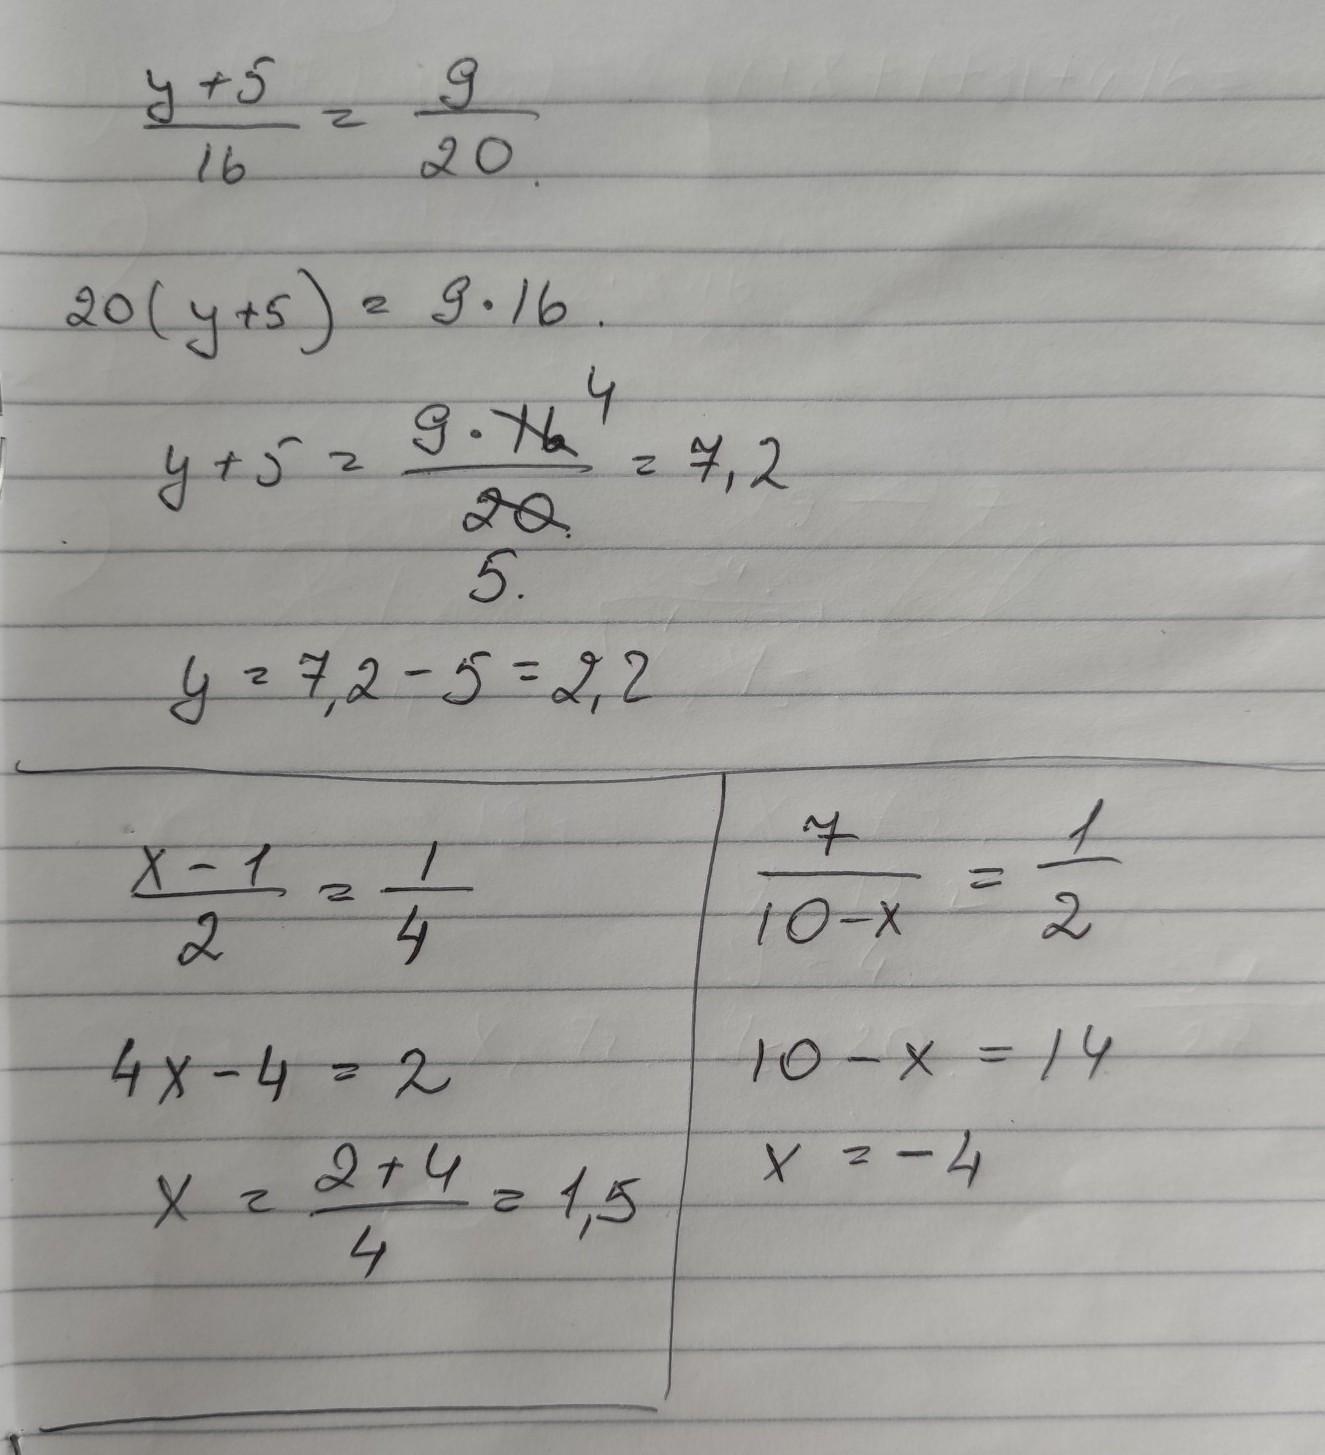 y+5/16 = 9/20.
20(y+5) = 9·16.
y+5 = 9·16 4/20. 5. = 7,2
y = 7,2-5 = 2,2
x-1/2 = 1/4
4x-4 = 2
x = 2+4/4 = 1,5
7/10-x = 1/2
10-x = 14
x = -4